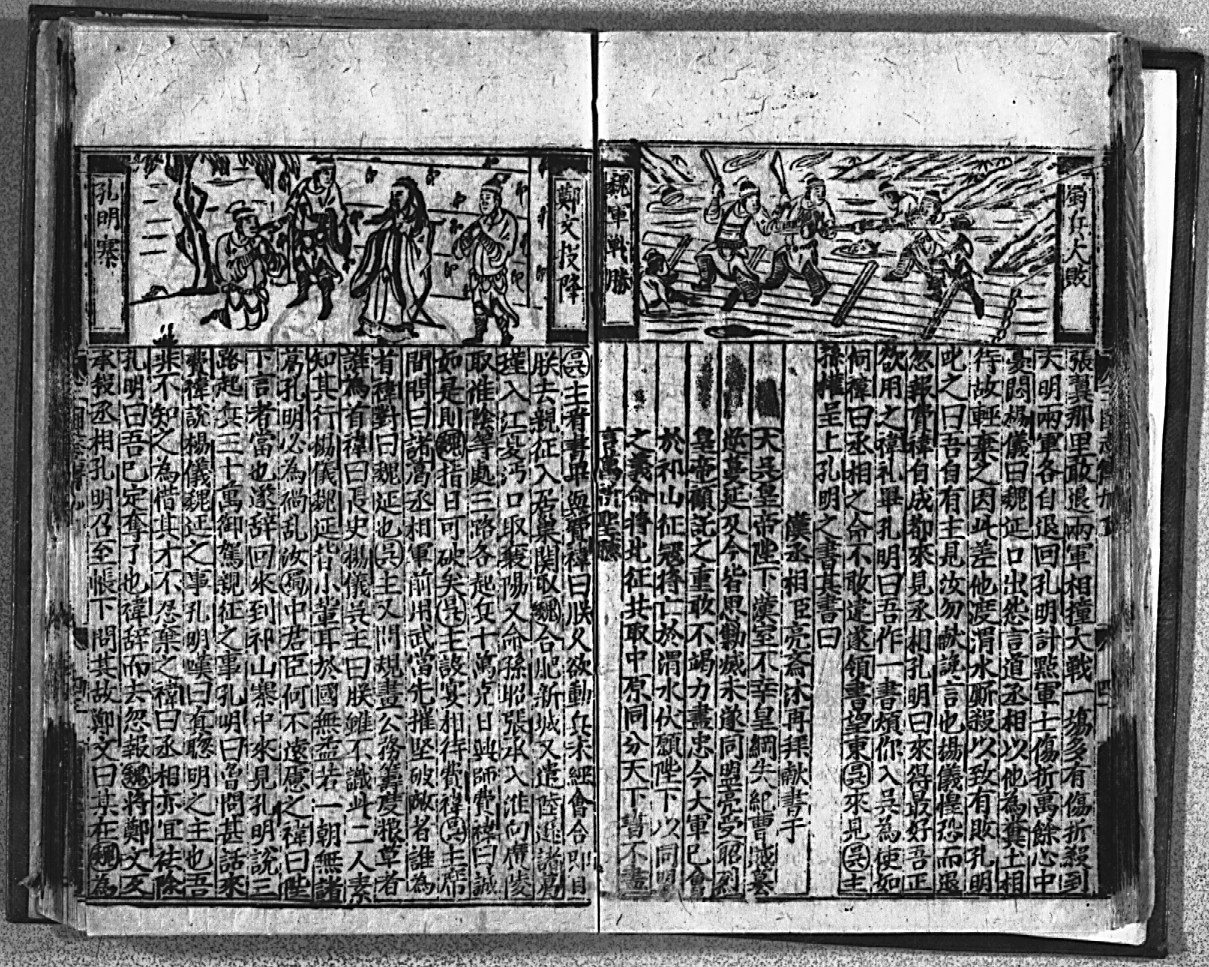 蜀兵大敗
魏軍戰勝
張翼那里敢退兩軍相撞大戰一塲多有傷折殺到
天明兩軍各自退回孔明計點軍士傷折萬餘心中
憂悶楊儀曰魏延口出怨言道丞相以他為糞土相
待故輕棄之因此差他渡渭水厮殺以致有敗孔明
叱之曰吾自有主見汝勿献讒言也楊儀惶恐而退
忽報費禕自成都來見丞相孔明曰來得最好吾正
欲用之禕礼畢孔明曰吾作一書煩你入吳為使如
何禕曰丞相之命不敢違遂領書望東吳來見吳主
孫權呈上孔明之書其書曰
漢丞相臣亮齋沐再拜献書于
天吳皇帝陛下漢室不幸皇綱失紀曹賊篡
逆蔓延及今皆思勦滅未遂同盟亮受昭烈
皇帝顧託之重敢不竭力盡忠今大軍已會
於祁山征寇將亡於渭水伏願陛下以同盟
之義命將北征共取中原同分天下書不盡
言萬希聖聽
鄭文投降
孔明寨
吳主看書畢與費禕曰朕久欲動兵未經會合即日
朕去親征入居巢関取魏合肥新城又遣陸遜諸葛
瑾入江夏沔口取襄陽又命孫昭張承入淮向廣陵
取淮陰等處三路各起兵十萬克日興師費禕曰誠
如是則魏指日可破矣吳主設宴相待費禕吳主席
間問曰諸葛丞相軍前用武當先摧堅破敵者誰為
首禕對曰魏延也吳主又問規畫公務籌度粮草者
誰為首禕曰長史楊儀吳主曰朕雖不識此二人素
知其行楊儀魏延皆小輩耳於國無益若一朝無諸
葛孔明必為禍乱汝蜀中君臣何不遠慮之禕曰陛
下言者當也遂辞回來到祁山寨中來見孔明說三
路起兵三十萬御駕親征之事孔明曰曾問甚話來
費禕說楊儀魏延之事孔明嘆曰真聰明之主也吾
非不知之為惜其才不忍棄之禕曰丞相亦宜祛除
孔明曰吾已定奪了也禕辞而去忽報魏將鄭文反
来投丞相孔明召至帳下問其故鄭文曰某在魏為